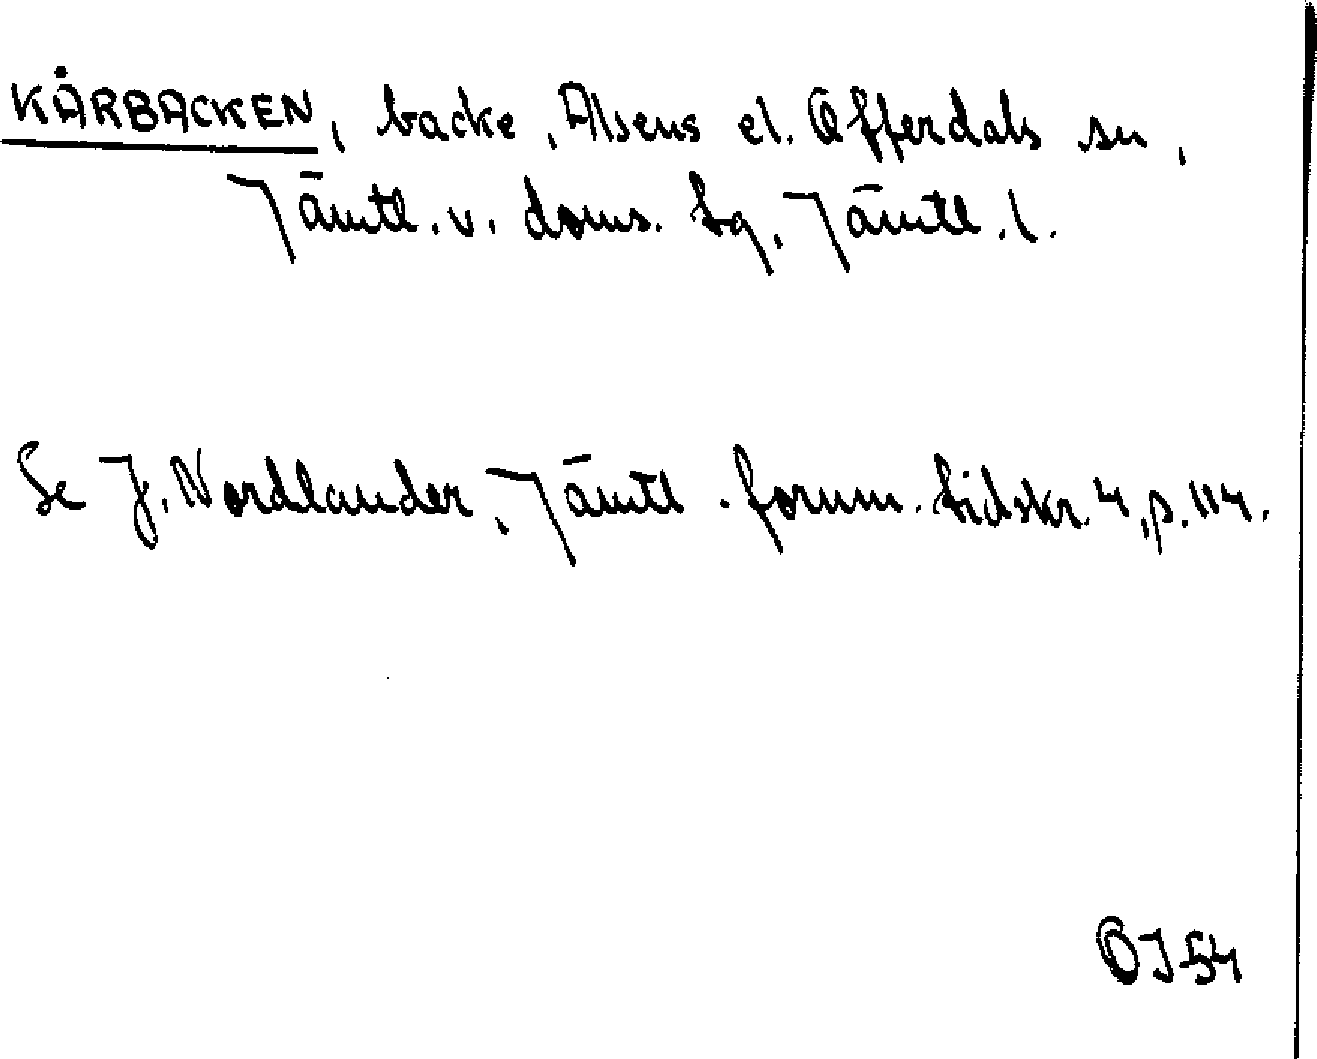 KÅRBACKEN, backe, Alsens el. Offerdals sn,
Jämtl. v. doms. tg, Jämtl. l.
Se J. Nordlander, Jämtl. fornm. tidskr. 4, p. 114.
ÖJ 54